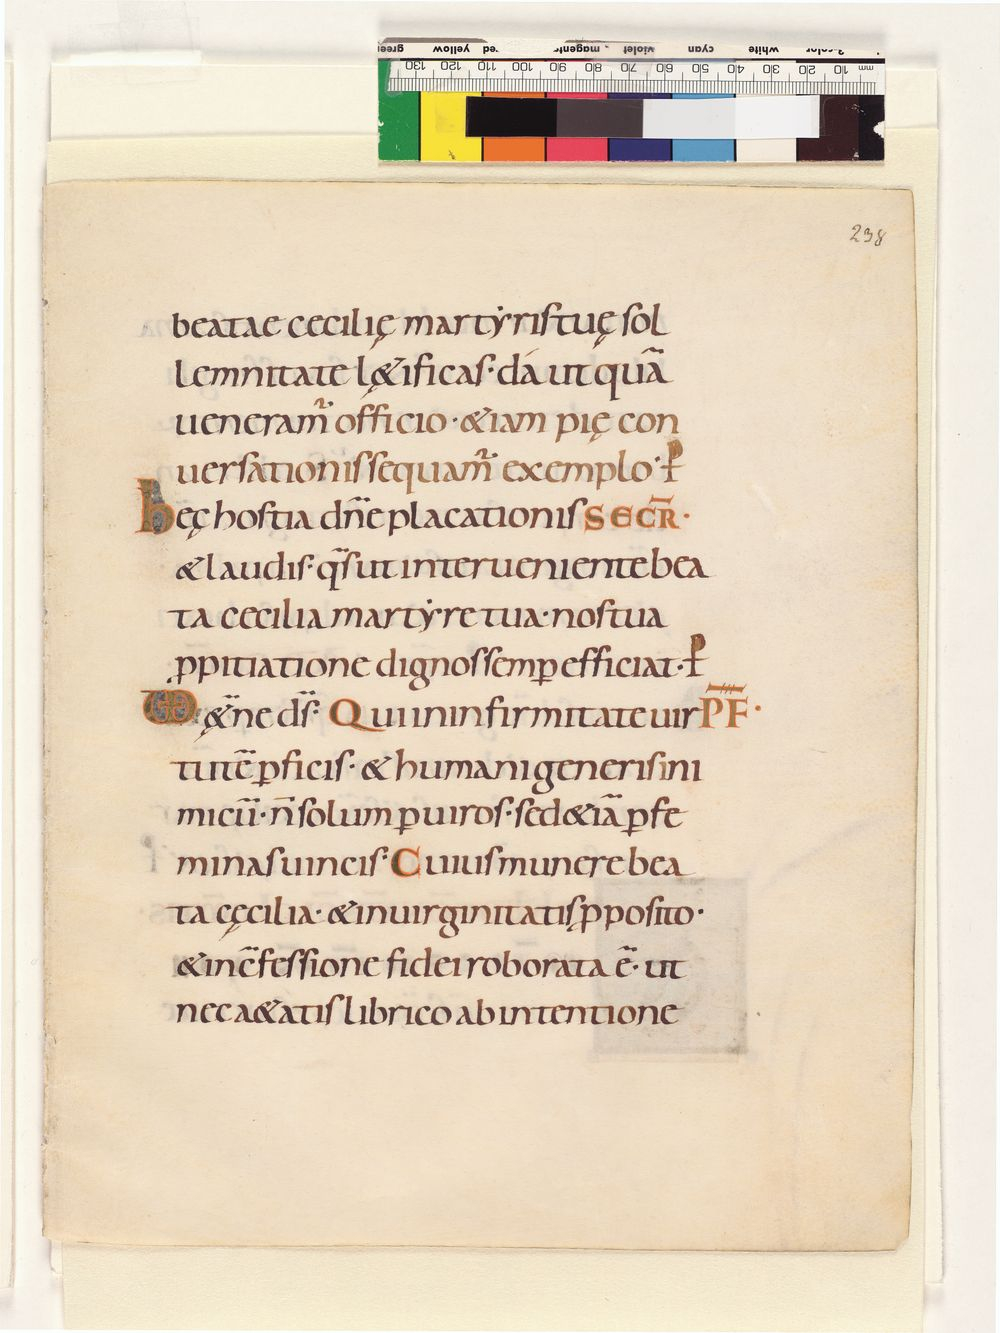 green yellow red magenta violet cyan white 3-color
130 120 110 100 90 80 70 60 50 40 30 20 10 mm
238
beatae cecilię martẏris tuę sol
lemnitate l&ificas· dá ut quā
ueneram̃ officio · &iam pię con
uersationis sequam̃ exemplo· ꝑ
hęc hostia dñe placationis SECR̄·
& laudis· q̄s ut interueniente bea
ta cecilia martẏre tua· nos tua
ꝓpitiatione dignos semꝑ efficiat· ꝑ
UD &̄ne d̄s· Qui in infirmitate uir PF·
tutē ꝑficis· & humani generis ini
micū· n̄ solum ꝑ uiros· sed &iā ꝑ fe
minas uincis· Cuius munere bea
ta cęcilia· & in uirginitatis ꝓposito·
& in c̄fessione fidei roborata ē· ut
nec a&atis lubrico ab intentione